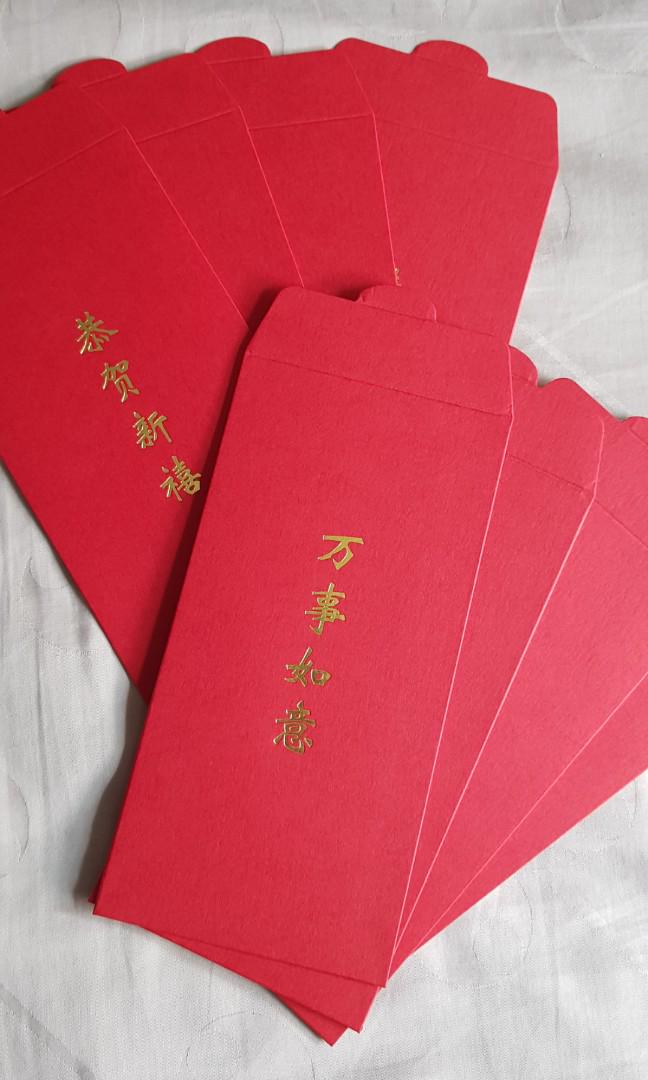 恭贺新禧
万事如意